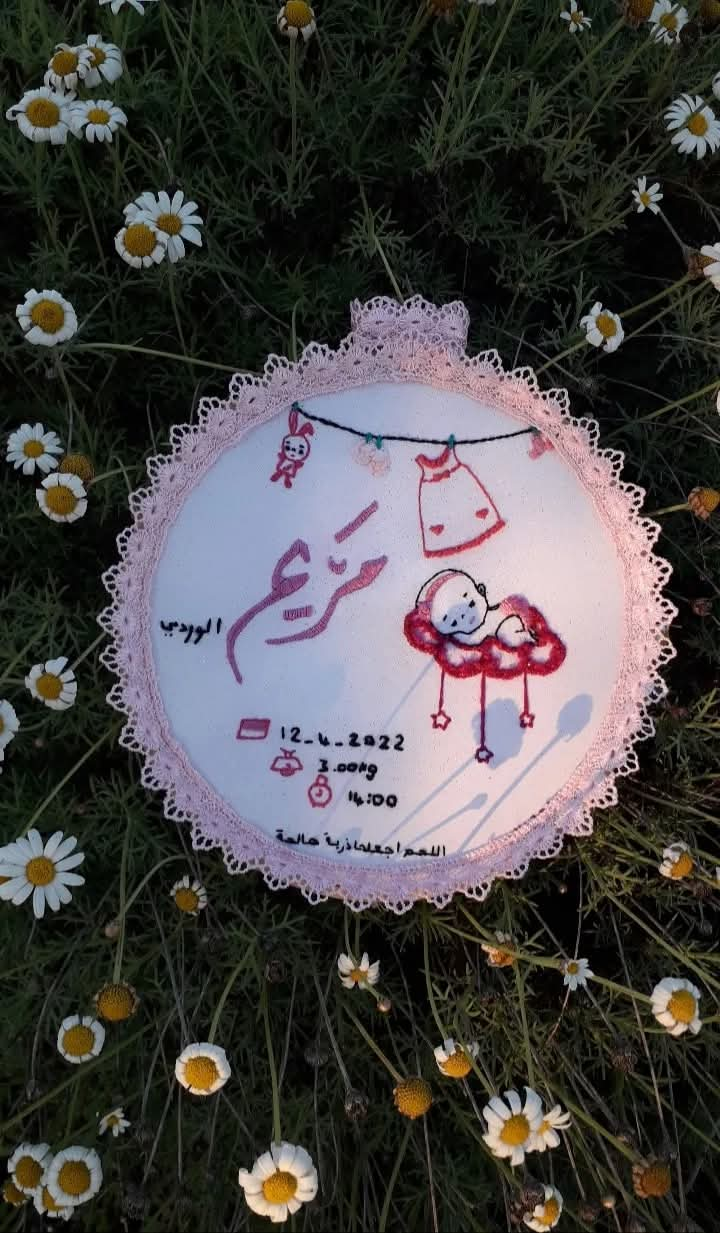 مَرْيم
الوردي
12-4-2022
3.00kg
14:00
اللهم اجعلها ذرية صالحة